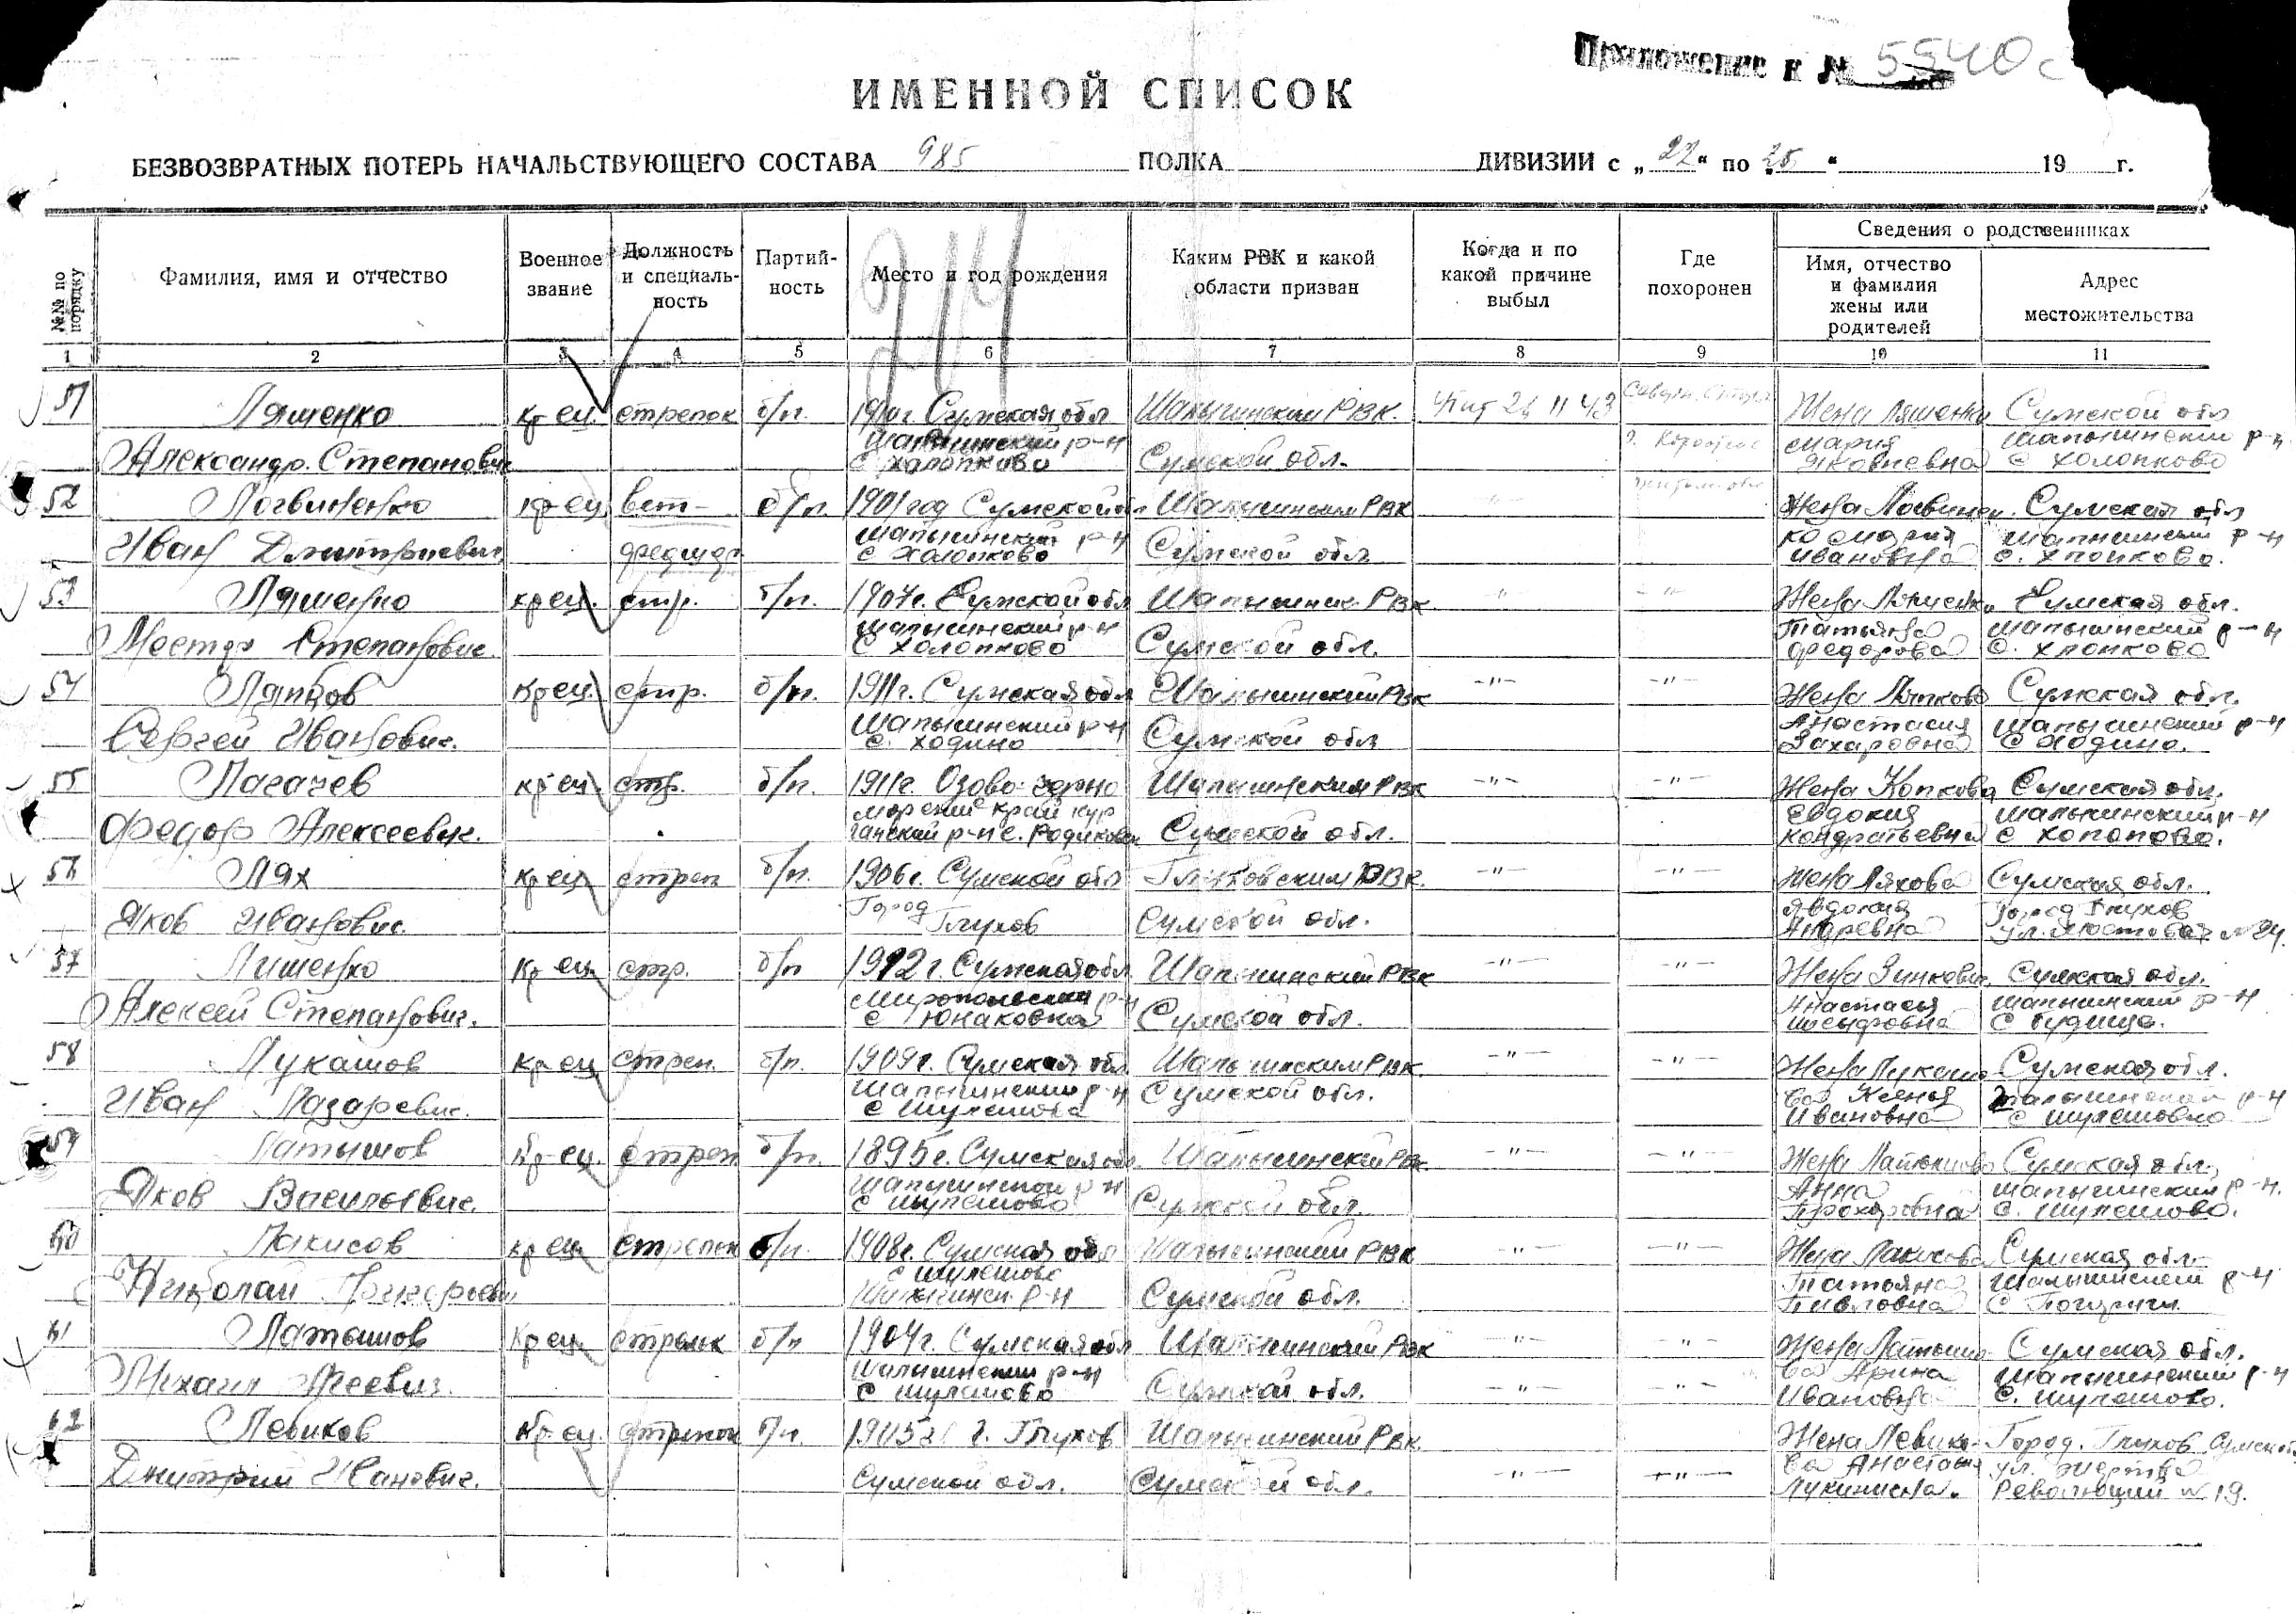 Приложение к № 5540с
ИМЕННОЙ СПИСОК
БЕЗВОЗВРАТНЫХ ПОТЕРЬ НАЧАЛЬСТВУЮЩЕГО СОСТАВА 985 ПОЛКА ДИВИЗИИ с „22“ по „25“ 19 г.
№№ по порядку
Фамилия, имя и отчество
Военное звание
Должность и специальность
Партийность
Место и год рождения
Каким РВК и какой области призван
Когда и по какой причине выбыл
Где похоронен
Сведения о родственниках
Имя, отчество и фамилия жены или родителей
Адрес местожительства
1 2 3 4 5 6 7 8 9 10 11
51 Ляшенко кр-ец. стрелок б/п. 1910г. Сумская обл Шалыгинский РВК. 11 43 Жена Ляшенко Сумской обл
Шалыгинский р-н Мария Шалыгинский р-н
Александр Степанович с холопково Сумской обл. Яковлевна с холопково
52 Логвиненко кр-ец вет- б/п. 1901 год Сумской обл Шалыгинским РВК -"- Жена Логвинен Сумская обл
Шалыгинский р-н ко Мария Шалыгинский р-н
Иван Дмитриевич фельдшер с Холопково Сумской обл Ивановна с. хлопково.
53 Ляшенко кр-ец. стр. б/п. 1907г. Сумской обл Шалыгинск. РВК -"- -"- Жена Ляшенко Сумская обл.
Шалыгинский р-н Татьяна Шалыгинский р-н
Нестор Степанович. с холопково Сумской обл. федорова с. хлопково
54 кр-ец. стр. б/п. 1911г. Сумская обл Шалыгинский РВК -"- -"- Жена Сумская обл.
Шалыгинский р-н Анастасия Шалыгинский р-н
Сергей Иванович. с. ходино Сумской обл Захаровна с ходино.
55 кр-ец. стр. б/п. 1911г. Озово-черно Шалыгинским РВК -"- -"- Жена Копкова Сумская обл.
морский край кур Евдокия Шалыгинский р-н
Федор Алексеевич. ганский р-н с. Родиковск Сумской обл. кондратьевна с холопово.
56 Лях кр-ец стрел б/п. 1906г. Сумской обл Глуховским РВК. -"- -"- Жена Ляхова Сумская обл.
Город Явдокия Город Глухов
Яков Иванович. Глухов Сумской обл. Андревна ул.
57 Лишенко кр-ец стр. б/п 1912г. Сумская обл. Шалыгинский РВК -"- -"- Жена Сумская обл.
Миропольский р-н Анастасья Шалыгинский р-н
Алексей Степанович. с Юнаковка Сумской обл. с будища.
58 Лукашов кр-ец стрел. б/п. 1909г. Сумская обл. Шалыгинским РВК. -"- -"- Жена Лукашо Сумская обл.
Шалыгинский р-н ва Ксенья Шалыгинский р-н
Иван Лазаревич. с шулешова Сумской обл. Ивановна с шулешовка
59 Латышов кр-ец. стрел б/п. 1895г. Сумская обл. Шалыгинский РВК. -"- -"- Жена Латышова Сумская обл.
Шалыгинской р-н Анна Шалыгинский р-н.
Яков Васильевич. с шулешово Сумской обл. Прохоровна с. шулешово.
60 Лакисов кр-ец стрелок б/п. 1908г. Сумская обл Шалыгинский РВК -"- -"- Жена Лакисова Сумская обл.
с шулешово Татьяна Шалыгинский р-н
Николай Григорьевич Шалыгинск. р-н Сумской обл. Павловна с
61 Латышов кр-ец стрелок б/п 1904г. Сумская обл Шалыгинский РВК -"- -"- Жена Латышо Сумская обл.
Шалыгинский р-н ва Арина Шалыгинский р-н
Михаил с шулешово Сумской обл. -"- -"- Ивановна с. шулешово.
62 Левиков кр-ец. стрелок б/п. 1905г г. Глухов Шалыгинский РВК. Жена Левико- Город. Глухов Сумской
ва Анастасия ул. жертва
Дмитрий Иванович. Сумской обл. Сумской обл. -"- -"- Лукинична. Революции №19.